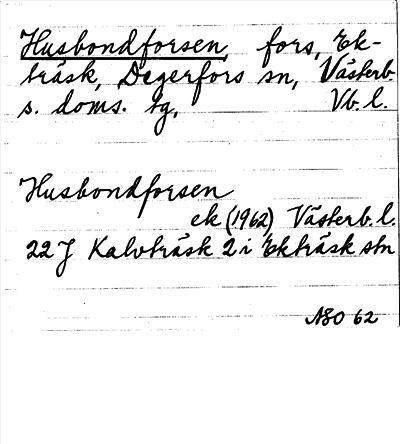 Husbondforsen, fors, Ek-
träsk, Degerfors sn, Västerb.
s. doms. tg, Vb. l.
Husbondforsen
ek (1962) Västerb. l.
22 J Kalvträsk 2 i Ekträsk stn
NSO 62